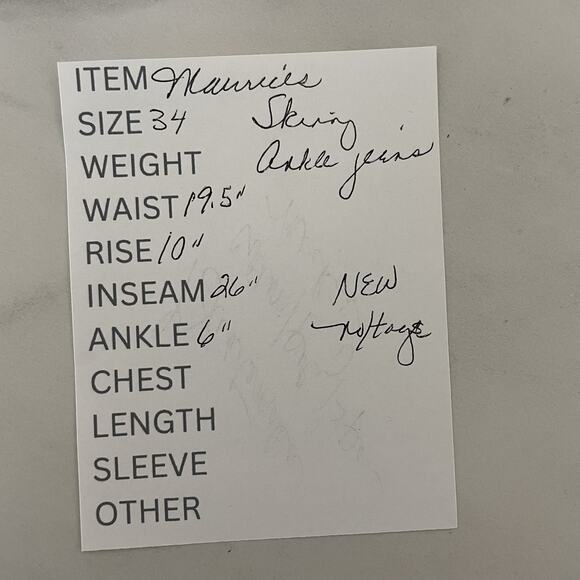 ITEM Maurices
SIZE 34 Skinny
WEIGHT Ankle jeans
WAIST 19.5"
RISE 10"
INSEAM 26" NEW
ANKLE 6" no/tags
CHEST
LENGTH
SLEEVE
OTHER